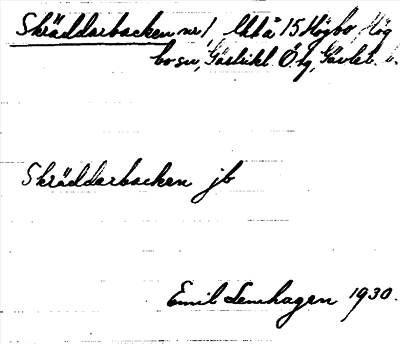 Skräddarbacken nr 1, Utb å 15 Högbo, Hög
bo sn, Gästrikl. Ö tg, Gävleb. l.
Skräddarbacken jb
Emil Lemhagen 1930.